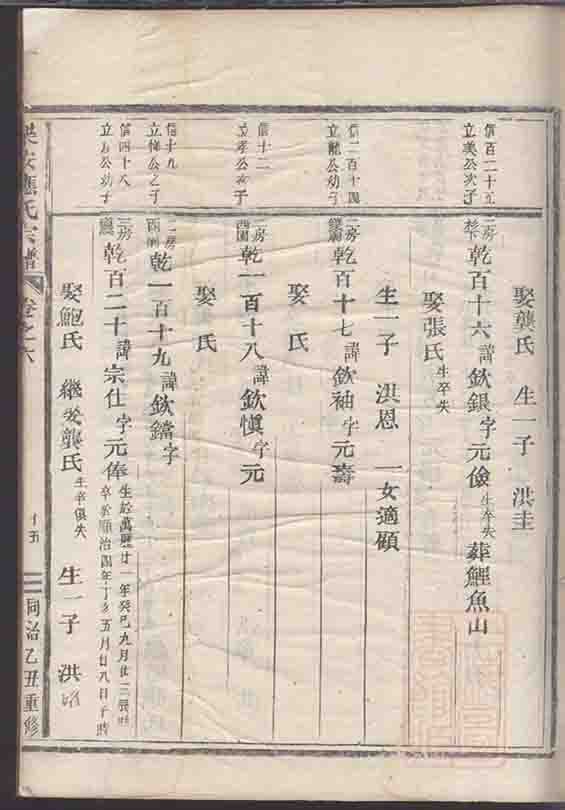 娶龔氏 生一子 洪圭
信百二十五
立美公次子
二房乾百十六諱欽銀字元儉生卒失葬鯉魚山
娶張氏生卒失
生一子 洪恩 一女適碩
信二百十四
立龍公幼子
二房乾百十七諱欽袖字元壽
娶 氏
信十二
立孝公次子
二房乾一百十八諱欽愼字元
娶 氏
信十九
立 公之子
二房乾一百十九諱欽鐺字
信四十八
立 公幼子
三房乾百二十諱宗仕字元俸
生於萬歷廿一年癸巳九月廿三辰時
卒於順治四年丁亥五月廿八日子時
娶鮑氏 繼娶龔氏生卒俱失 生一子 洪
樂安應氏宗譜 卷之六 十五 同治乙丑重修